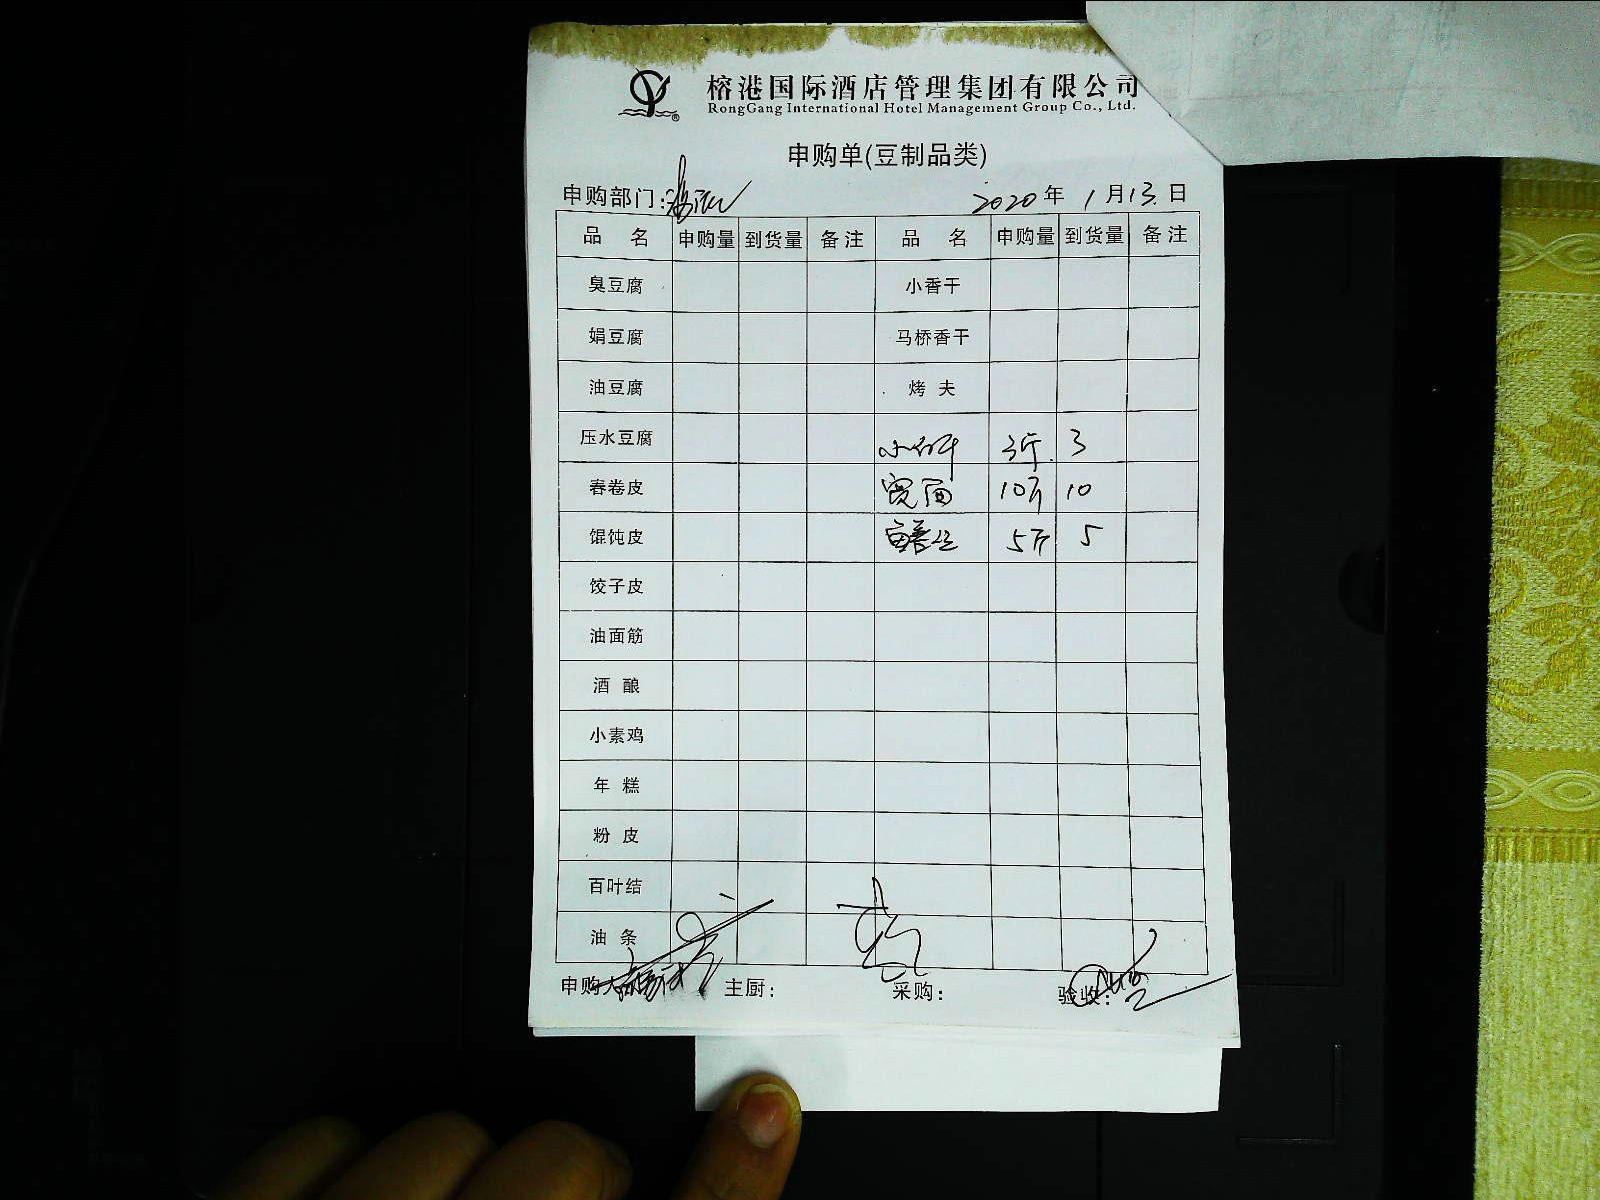 榕港国际酒店管理集团有限公司
RongGang International Hotel Management Group Co., Ltd.
申购单(豆制品类)
申购部门: 2020年 1月13日
品名 申购量 到货量 备注 品名 申购量 到货量 备注
臭豆腐 小香干
娟豆腐 马桥香干
油豆腐 烤夫
压水豆腐 3斤 3
春卷皮 宽面 10斤 10
馄饨皮 鳝丝 5斤 5
饺子皮
油面筋
酒酿
小素鸡
年糕
粉皮
百叶结
油条
申购人 主厨: 采购: 验收: